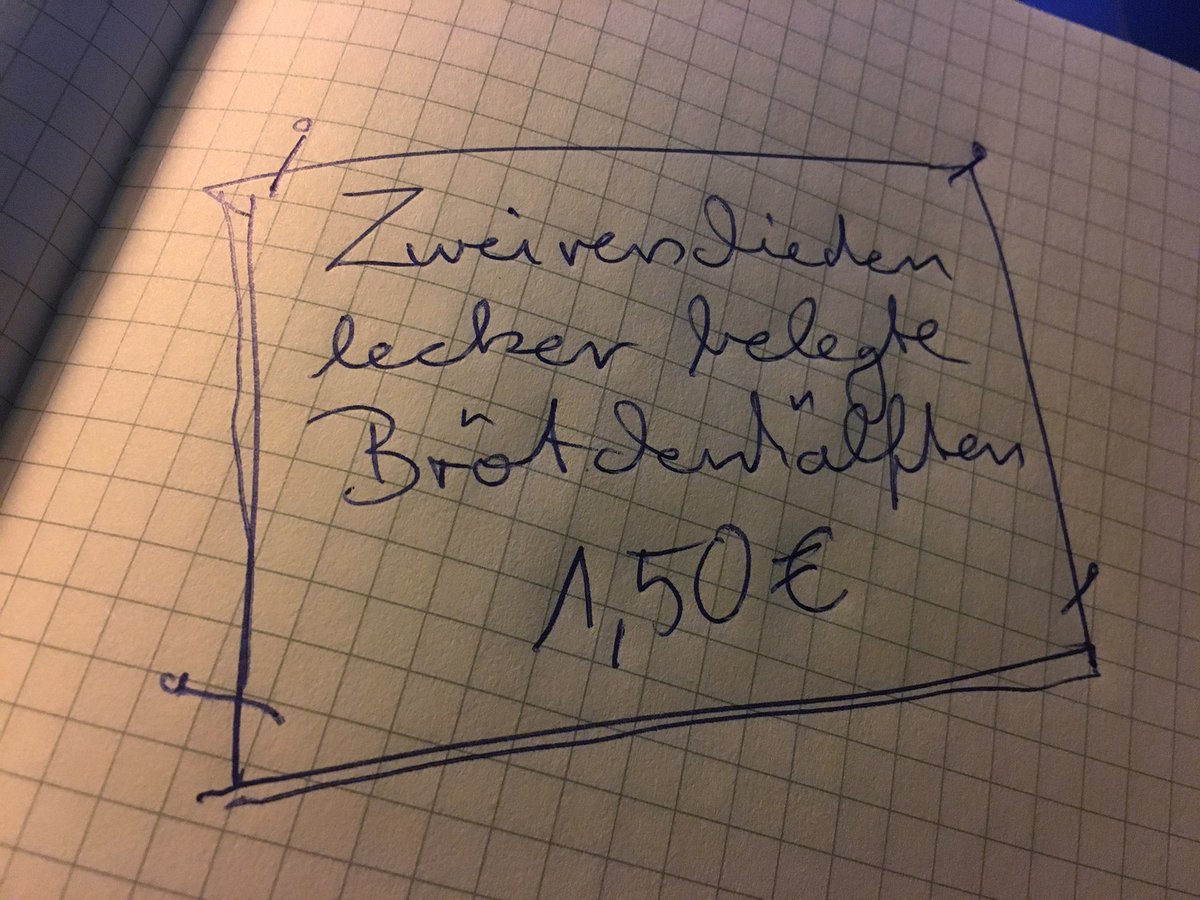 Zweiverschieden
lecker belegte
Brötchenhälften
1,50 €